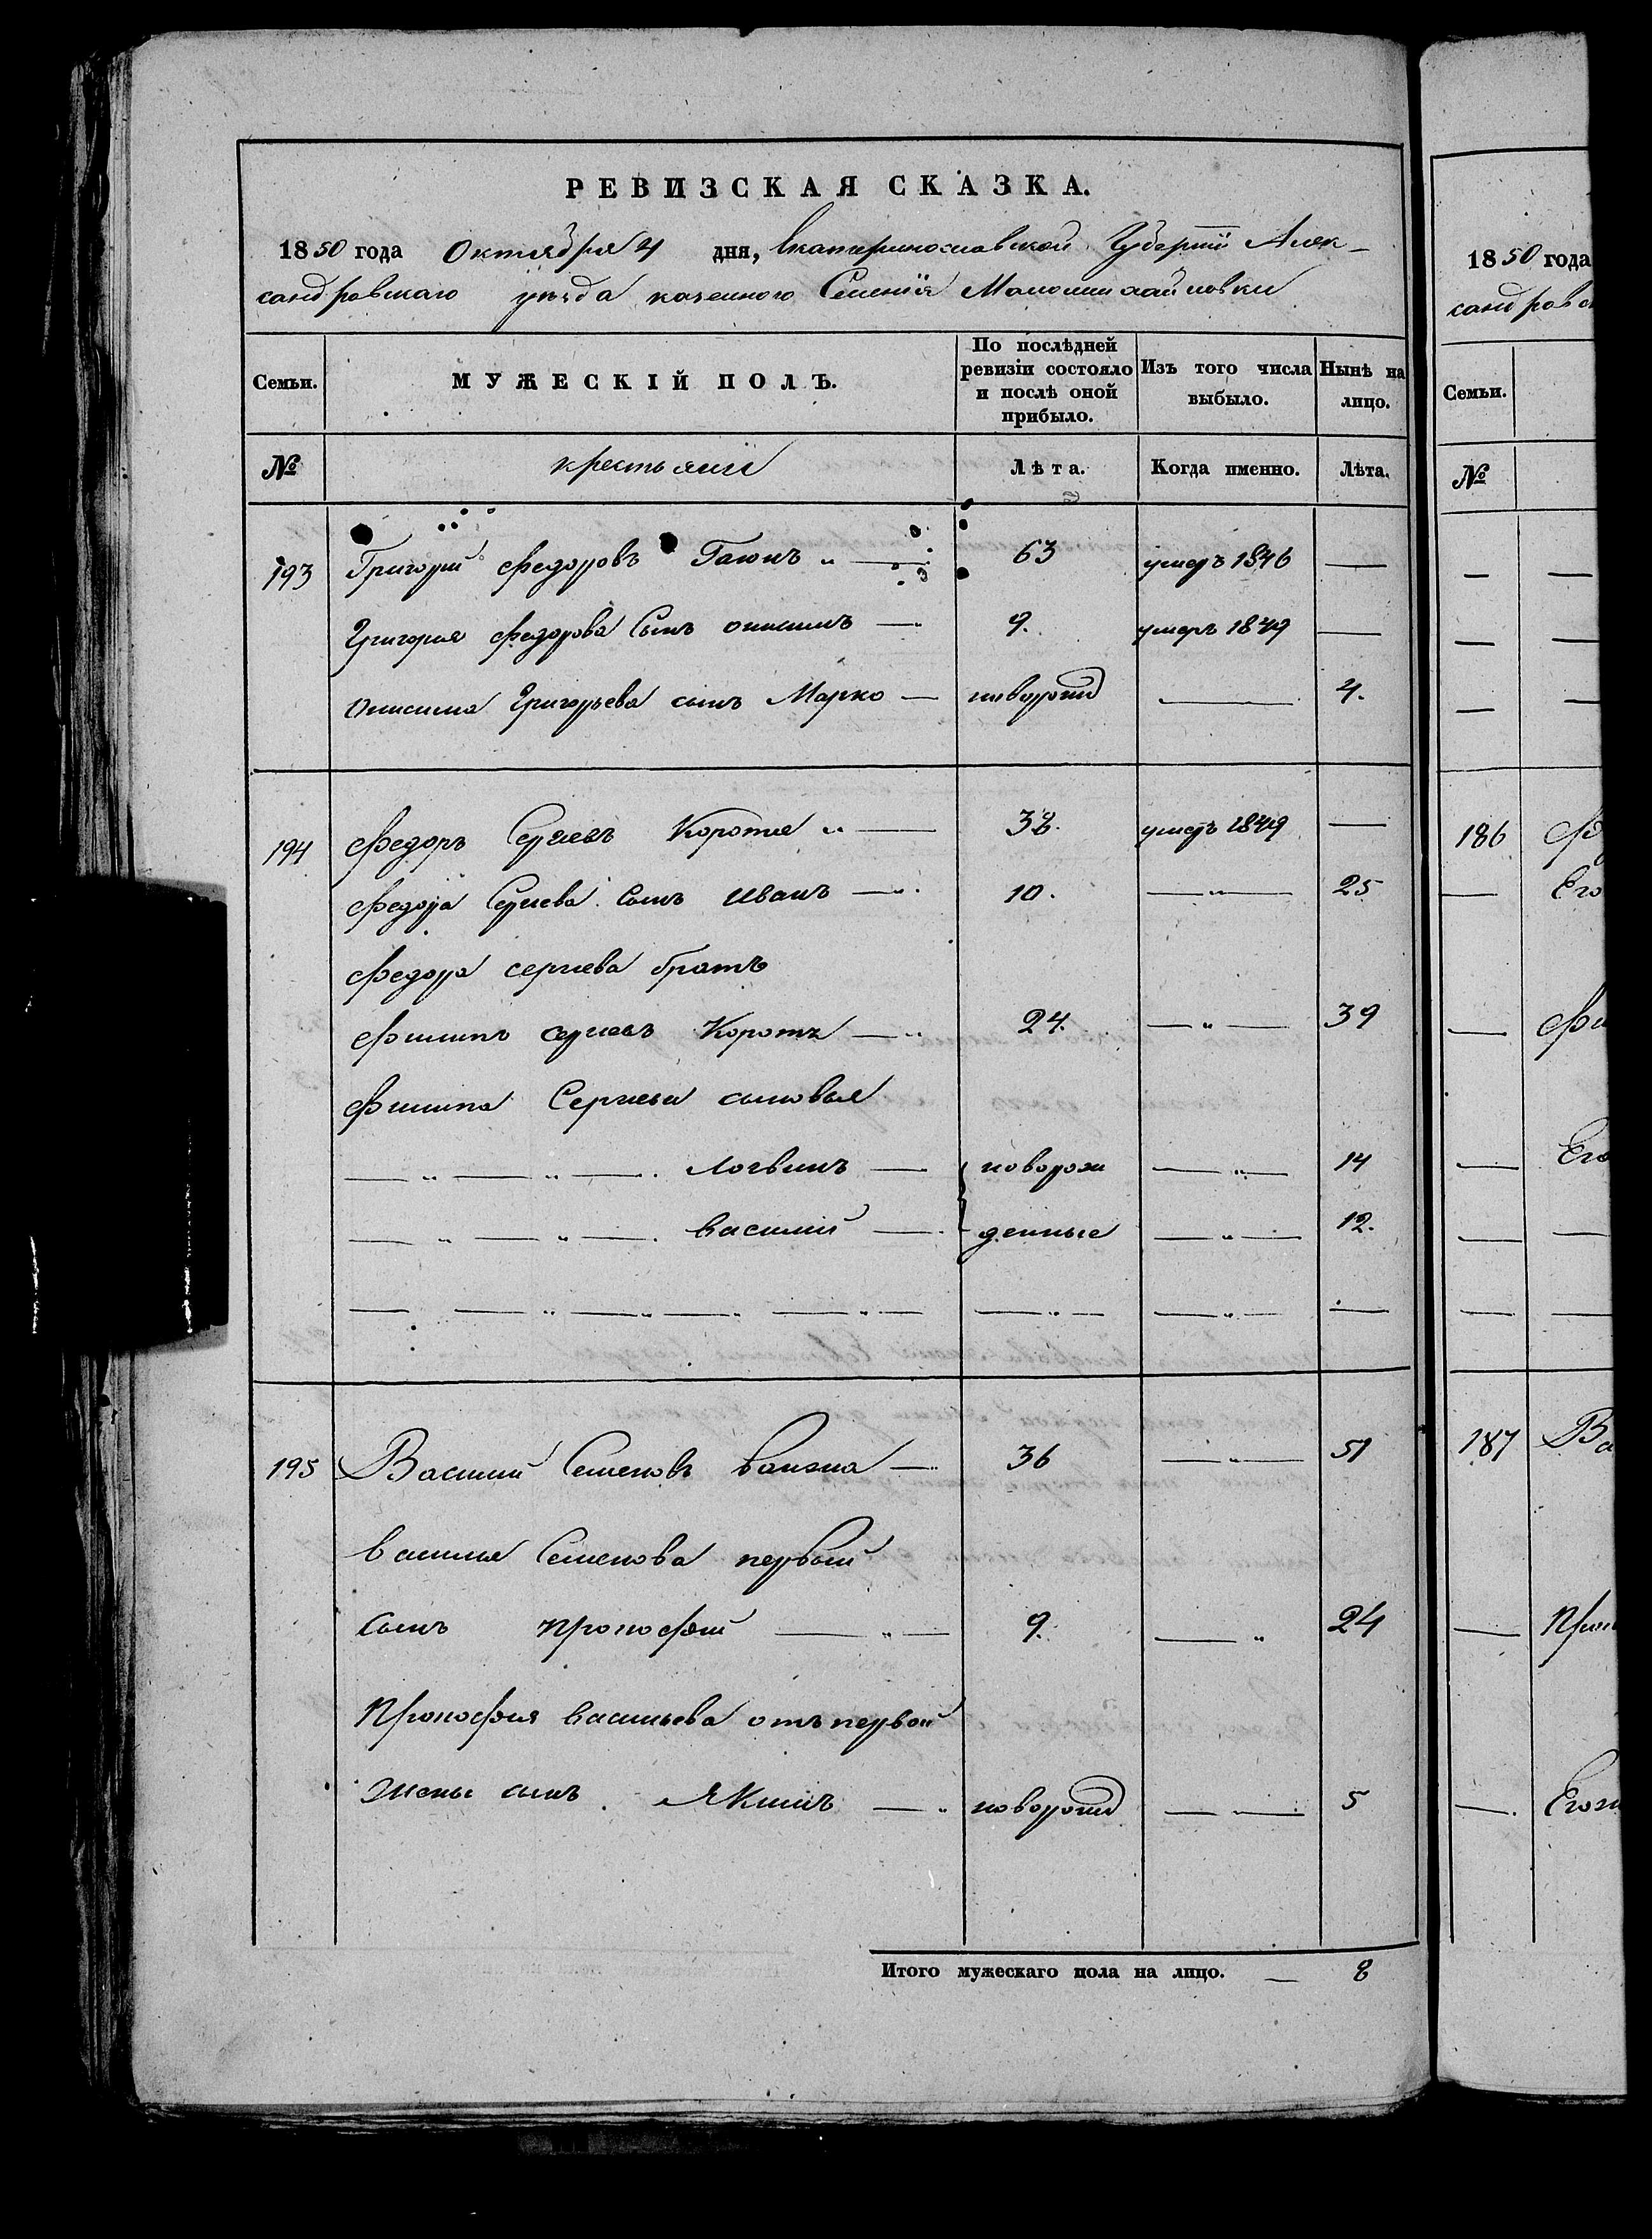 РЕВИЗСКАЯ СКАЗКА.
1850 года Октября 4 дня, Екатеринославской Губернии Алек-
сандровскаго уѣзда казенного Селенія Маломихайловки
Семьи. МУЖЕСКІЙ ПОЛЪ. По послѣдней ревизіи состояло и послѣ оной прибыло. Изъ того числа выбыло. Нынѣ на лицо.
№ крестьяни Лѣта. Когда именно. Лѣта.
193 Григорій Федоровъ 63 умеръ 1846 —
Григорія Федорова Сынъ онисимъ — 9. умеръ 1849 —
Онисима Григорьева сынъ Марко — новорожд — 4.
194 Федоръ Сергіевъ Коротя — 38. умеръ 1849 —
Федора Сергіева Сынъ Иванъ — 10. — 25
Федора сергіева братъ
Филипъ сергіевъ Коротя — 24. — 39
Филипа Сергіева сыновья
— Логвинъ — новорож — 14
— Василій — денные — 12.
195 Василій Семеновъ — 36 — 51
Василія Семенова первый
сынъ Прокофій — 9. — 24
Прокофія Васильева отъ первой
жены сынъ Якимъ — новорожд — 5
Итого мужескаго пола на лицо. — 8
1850 года
сандровс
Семьи.
№
186 Ф
Его
Фи
Его
187 Ва
Прок
Егож